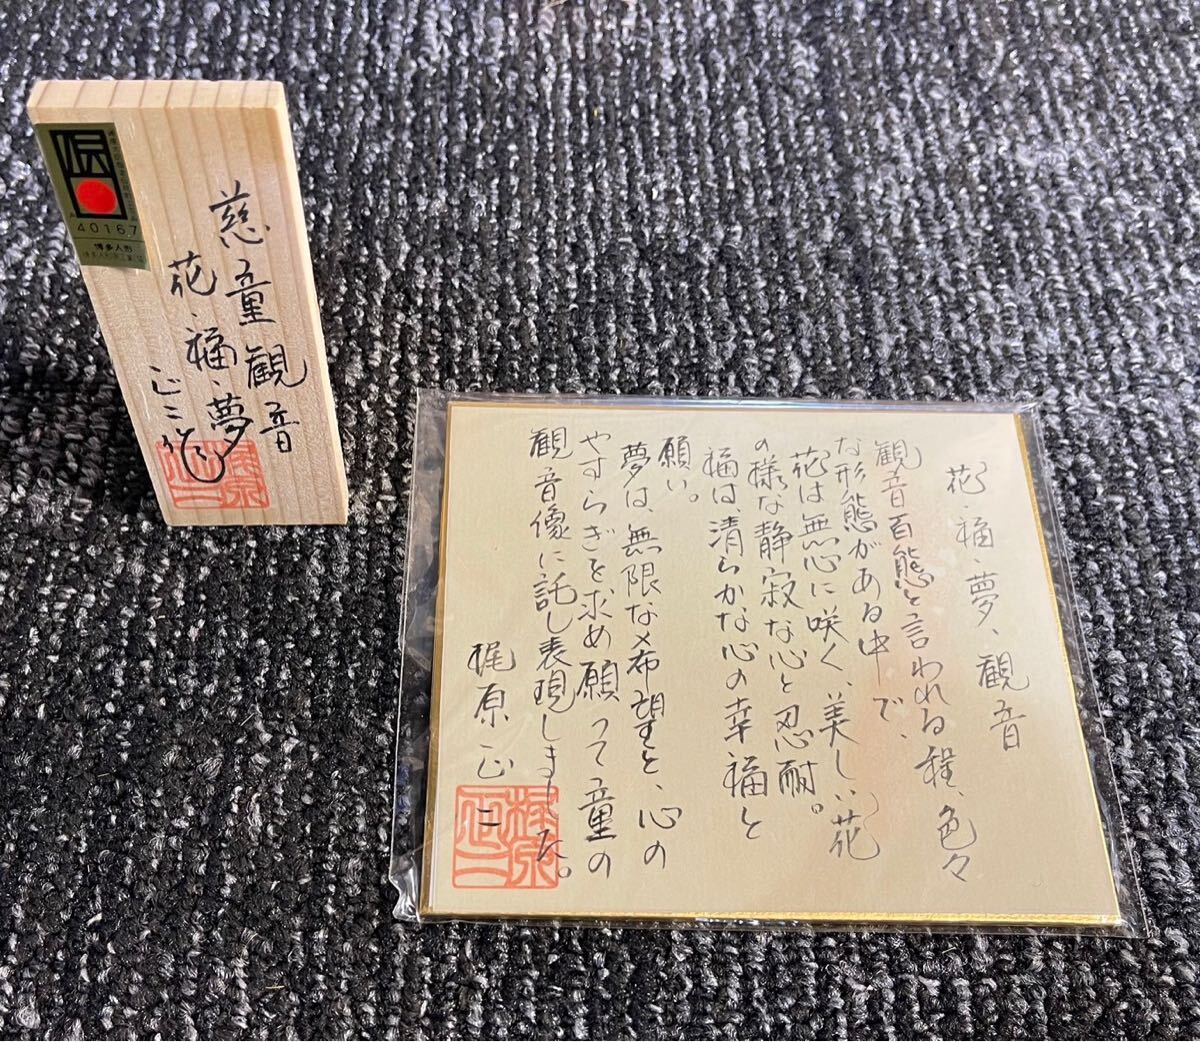 伝
40167
博多人形
慈童観音
花・福・夢
正二作
梶原正二
花・福・夢、観音
観音百態と言われる程、色々
な形態がある中で、
花は無心に咲く、美しい花
の様な静寂な心と忍耐。
福は、清らかな心の幸福と
願い。
夢は、無限な希望と、心の
やすらぎを求め願って童の
観音像に託し表現しました。
梶原正二
梶原正二